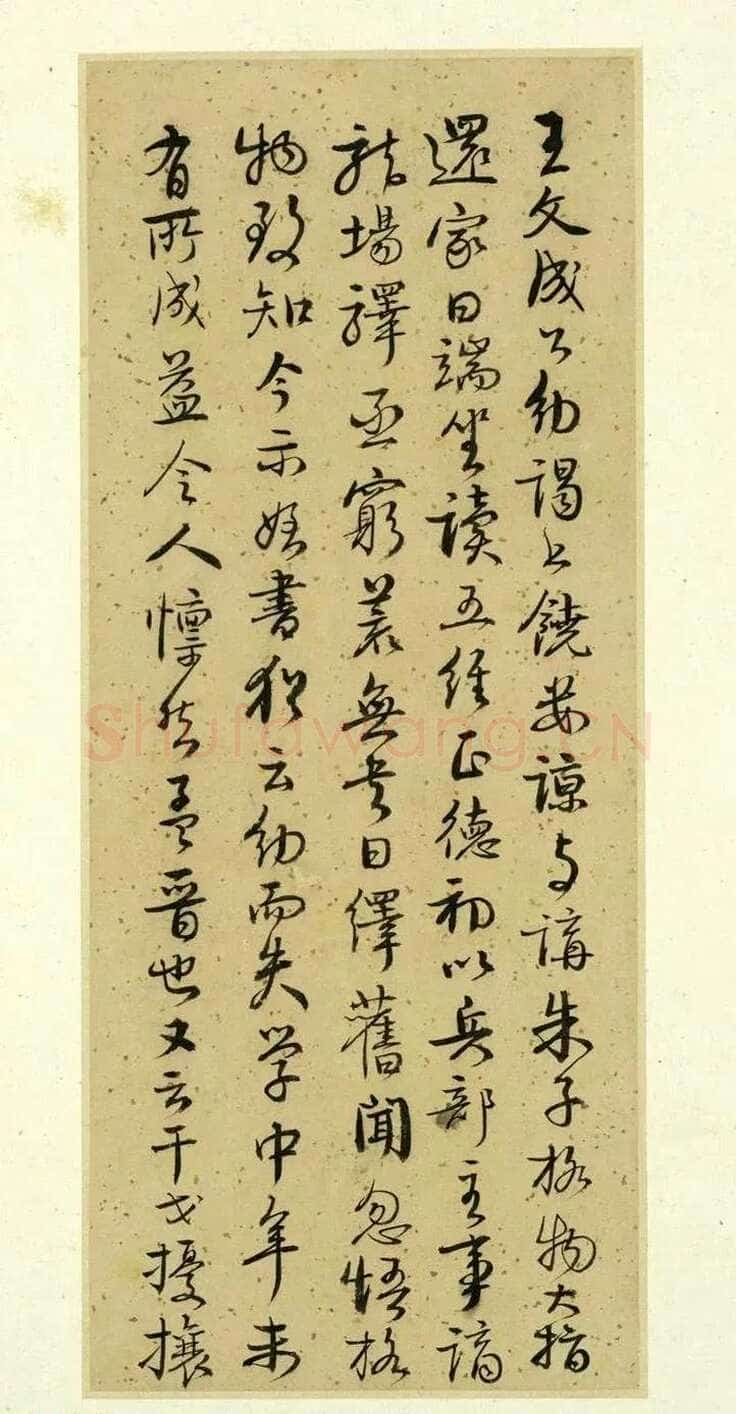 王文成公幼謁上饒婁諒与講朱子格物大指
還家日端坐读五经正德初以兵部主事谪
龙場驛丞窮荒無書日繹舊聞忽悟格
物致知今示姪書猶云幼而失学中年未
有所成益令人懔然孟晋也又云干戈擾攘
Shufawang.CN